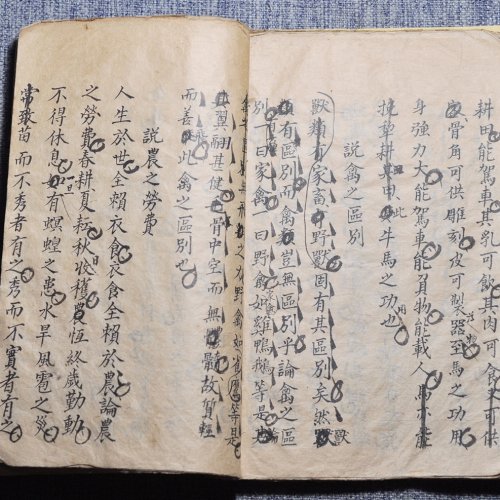 耕田能駕車其乳可飲其肉可供
皮骨角可供雕刻皮可製器至馬之功用
身強力大能駕車能負物能載人馬亦
挽犂耕其田此牛馬之功也
說禽之區別
獸類有家畜野獸固有其區別矣然獸
類有區別而禽類豈無區別乎論禽之區
別一曰家禽一曰野禽如雞鴨鵝等是
之有野禽如雀鷹等是
翼翮甚健骨中空而無髓骸故質輕
而善飛此禽之區別也
說農之勞費
人生於世全賴衣食衣食全賴於農論農
之勞費春耕夏耘秋收穫農恆終歲勤動
不得休息如有螟蝗之患水旱風雹之災
常致苗而不秀者有之秀而不實者有之